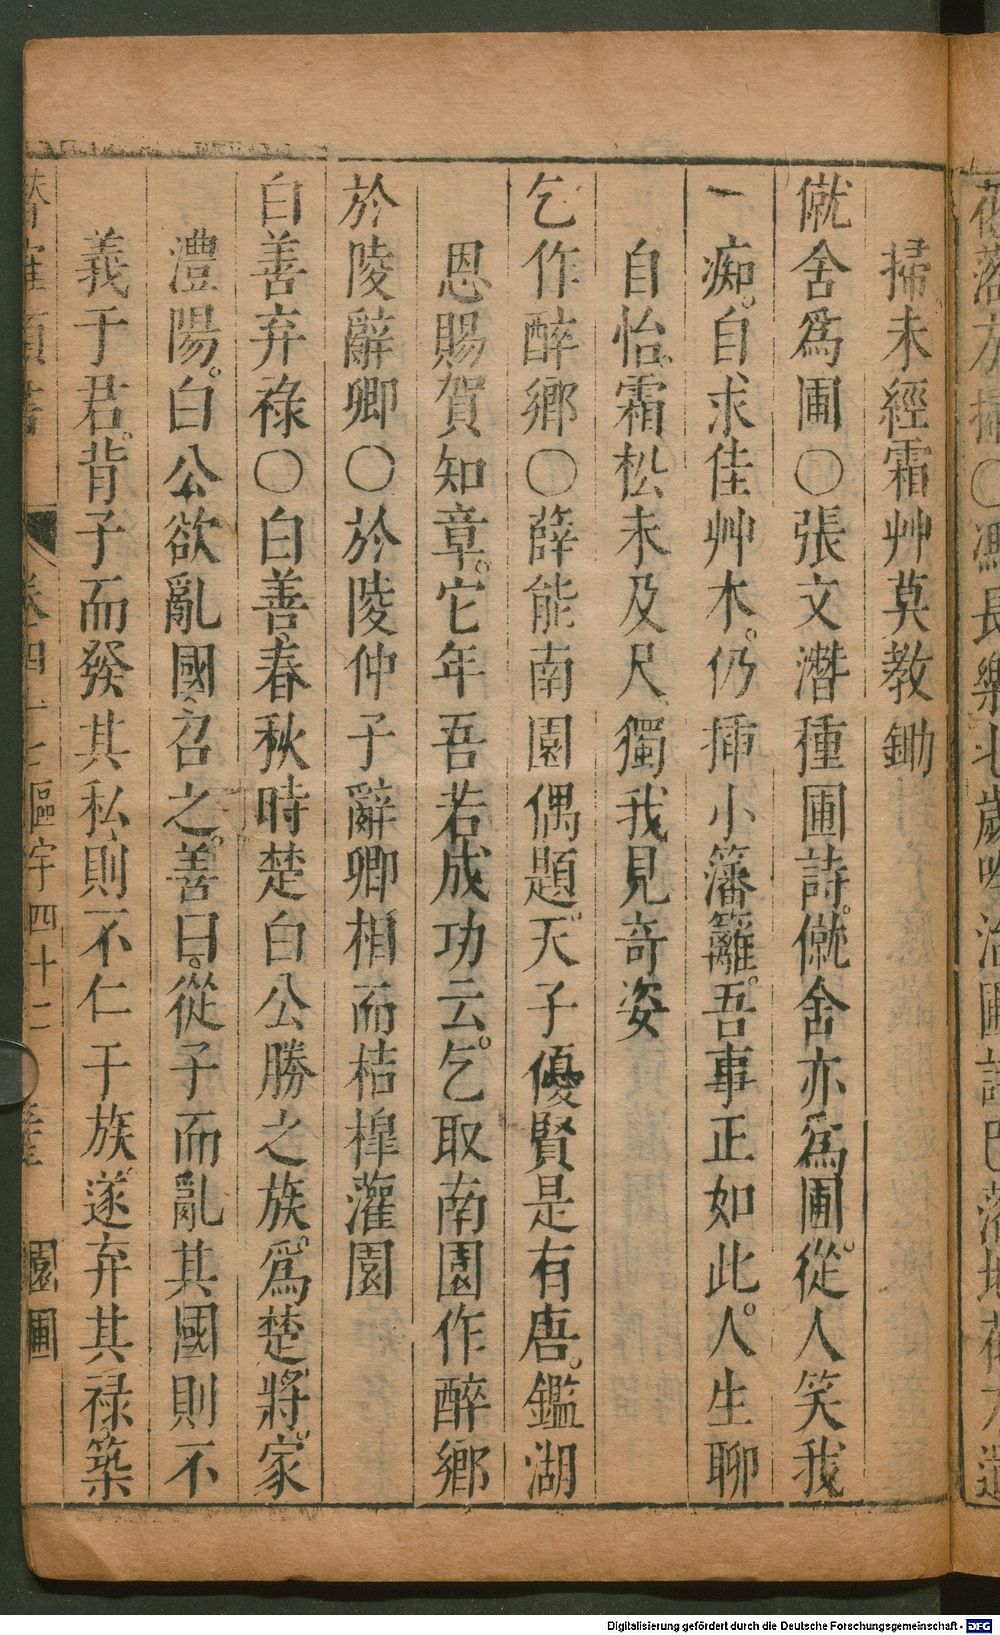 掃未經霜艸莫教鋤
僦舍爲圃○張文潛種圃詩。僦舍亦爲圃。從人笑我
一痴。自求佳艸木。仍揷小藩籬。吾事正如此。人生聊
自怡。霜松未及尺。獨我見竒姿
乞作醉鄉○薛能南園偶題。天子優賢是有唐。鑑湖
恩賜賀知章。它年吾若成功云。乞取南園作醉鄉
於陵辭卿○於陵仲子辭卿相而桔槹灌園
白善弃祿○白善。春秋時楚白公勝之族。爲楚將。家
澧陽。白公欲亂國。召之。善曰。從子而亂其國。則不
義于君。背子而發其私。則不仁于族。遂弃其祿。築
卷四十七 區宇四十二 園圃
Digitalisierung gefördert durch die Deutsche Forschungsgemeinschaft - DFG